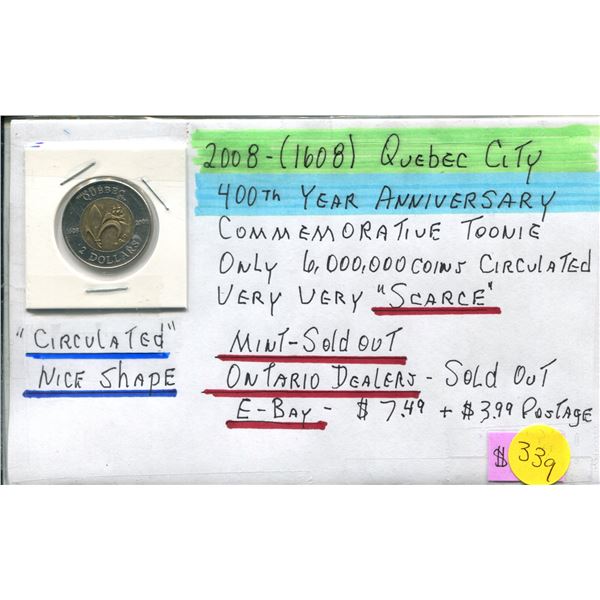 2008-(1608) QUEBEC CITY
400TH YEAR ANNIVERSARY
COMMEMORATIVE TOONIE
ONLY 6,000,000 COINS CIRCULATED
VERY VERY "SCARCE"
MINT-SOLD OUT
ONTARIO DEALERS - SOLD OUT
E-BAY - $7.49 + $3.99 POSTAGE
QUÉBEC
1608 2008
2 DOLLARS
"CIRCULATED"
NICE SHAPE
$ 339